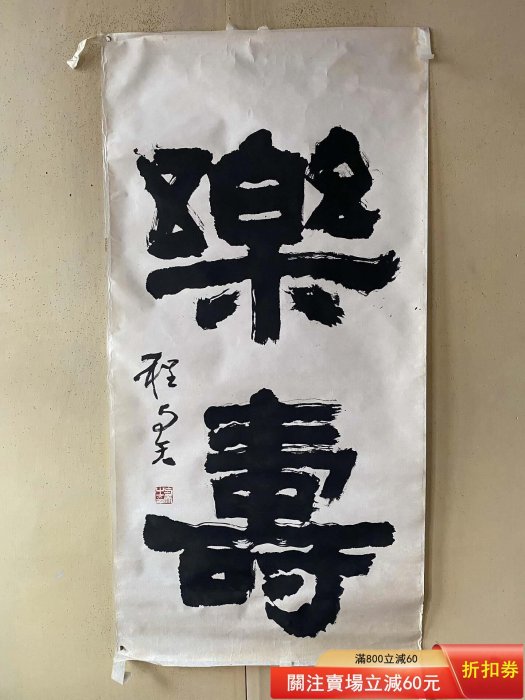 樂
壽
程与天
滿800立減60
關注賣場立減60元
折扣券